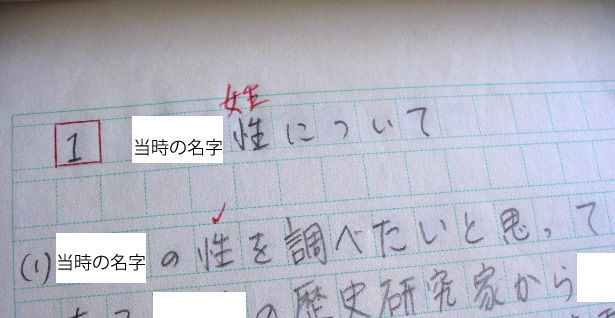 姓
1 当時の名字 性について
(1) 当時の名字 の性を調べたいと思って
の歴史研究家から